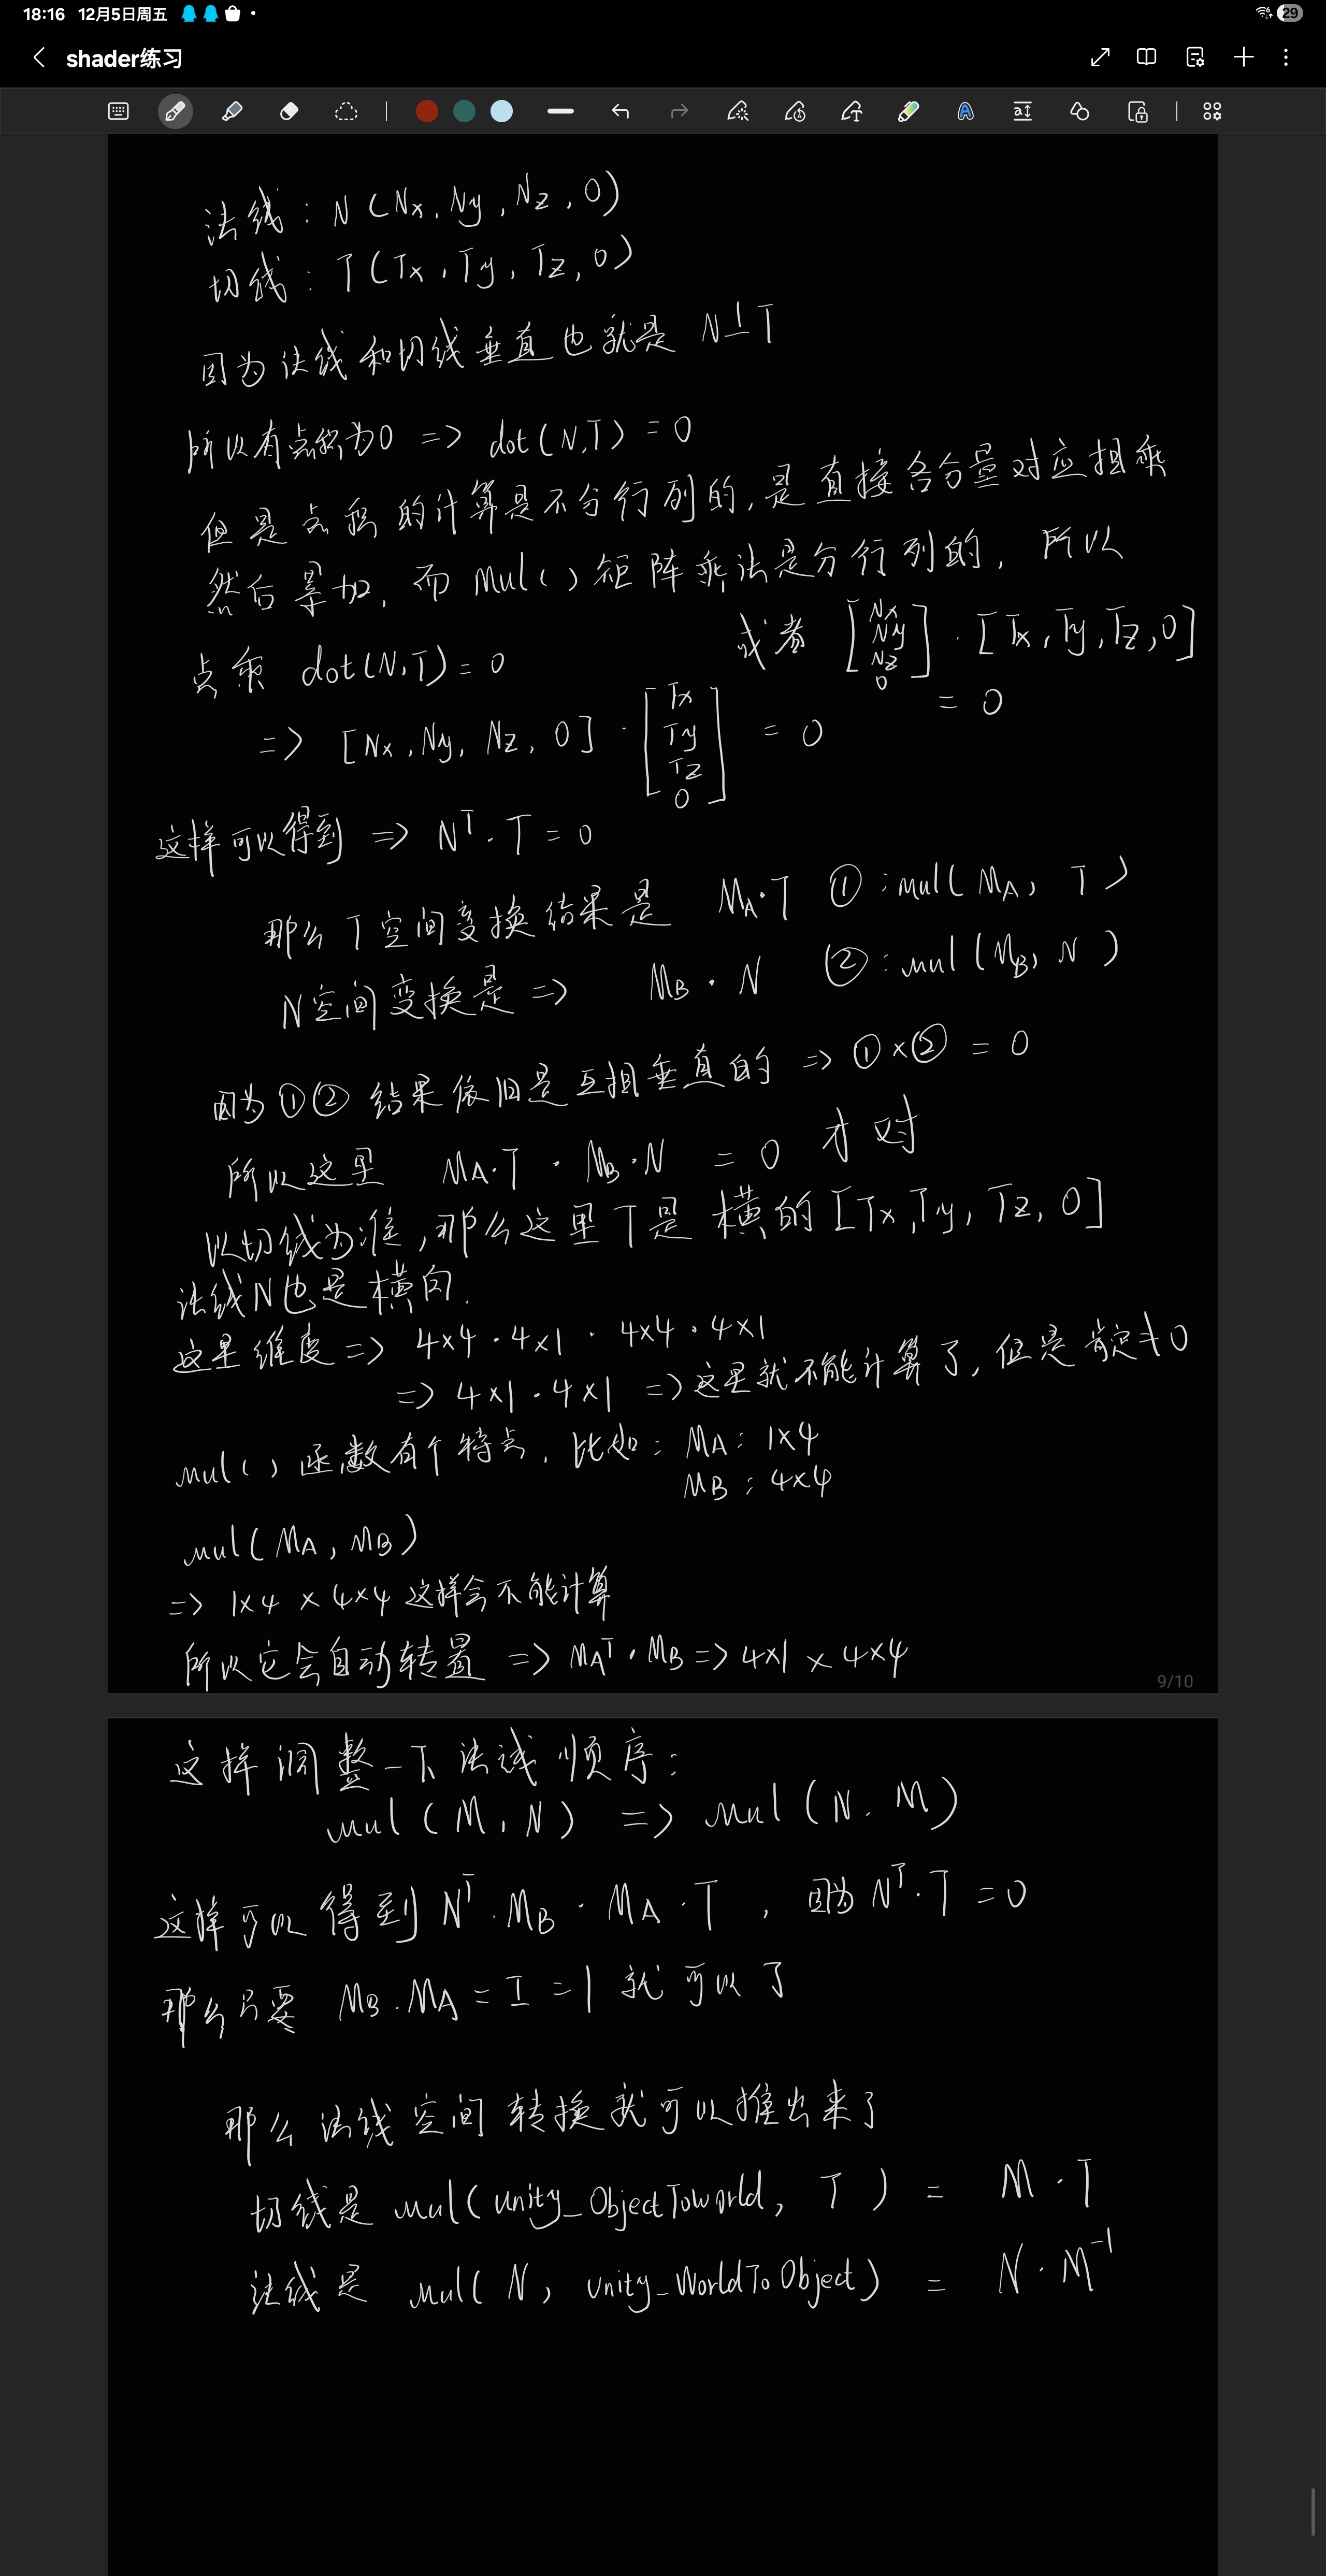 18:16 12月5日周五
29
shader练习
法线: N (Nx, Ny, Nz, 0)
切线: T (Tx, Ty, Tz, 0)
因为法线和切线垂直也就是 N⊥T
所以有点积为0 => dot(N,T) = 0
但是点积的计算是不分行列的,是直接各分量对应相乘
然后累加,而 Mul() 矩阵乘法是分行列的, 所以
点乘 dot(N,T) = 0
或者 [Nx Ny Nz 0] · [Tx, Ty, Tz, 0] = 0
=> [Nx, Ny, Nz, 0] · [Tx Ty Tz 0] = 0
这样可以得到 => Nᵀ · T = 0
那么 T 空间变换结果是 MA·T ①: mul(MA, T)
N空间变换是 => MB · N ②: mul(MB, N)
因为①② 结果依旧是互相垂直的 => ①×② = 0
所以这里 MA·T · MB·N = 0 才对
以切线为准,那么这里T是横的 [Tx, Ty, Tz, 0]
法线N也是横向.
这里维度 => 4×4 · 4×1 · 4×4 · 4×1
=> 4×1 · 4×1 => 这里就不能计算了, 但是肯定≠0
mul() 函数有个特点, 比如: MA: 1×4
MB: 4×4
mul(MA, MB)
=> 1×4 × 4×4 这样会不能计算
所以它会自动转置 => MAᵀ · MB => 4×1 × 4×4
9/10
这样调整一下法线顺序:
mul(M, N) => mul(N. M)
这样可以得到 Nᵀ · MB · MA · T , 因为 Nᵀ · T = 0
那么只要 MB · MA = I = 1 就可以了
那么法线空间转换就可以推出来了
切线是 mul(unity_ObjectToWorld, T) = M · T
法线是 mul(N, unity_WorldToObject) = N · M⁻¹